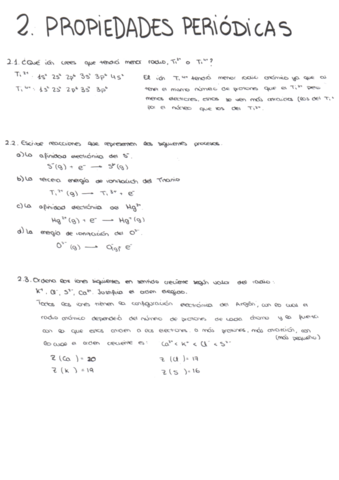 2. PROPIEDADES PERIÓDICAS
2.1. ¿Qué ión crees que tendrá menor radio, Ti
1s² 2s² 2p⁶ 3s² 3p⁶
El ión tendrá menor radio atómico ya que
mismo número de protones que
menos electrones, estos se ven más atraídos
2.2. Escribe reacciones que representen los siguientes procesos
a) La afinidad electrónica del S⁻
S⁻(g) + e⁻ → S²⁻(g)
b) La tercera energía de ionización del Titanio
Ti²⁺(g) → Ti³⁺ + e⁻
c) La afinidad electrónica de Hg²⁺
Hg²⁺(g) + e⁻ → Hg⁺(g)
d) La energía de ionización del O²⁻
O²⁻(g) → e⁻
2.3. Ordena los iones siguientes en sentido creciente según valor del radio:
K⁺, Cl⁻, S²⁻, Ca²⁺. Justifica el orden elegido.
Todos los iones tienen la configuración electrónica del Argón, con lo cual el
radio atómico dependerá del número de protones de cada átomo y la fuerza
con la que estos atraen a los electrones. A más protones, más atracción,
(más pequeño)
lo cual el orden creciente es: Ca²⁺ < K⁺ < Cl⁻ < S²⁻
Z (Ca) = 20 Z (Cl) = 17
Z (K) = 19 Z (S) = 16